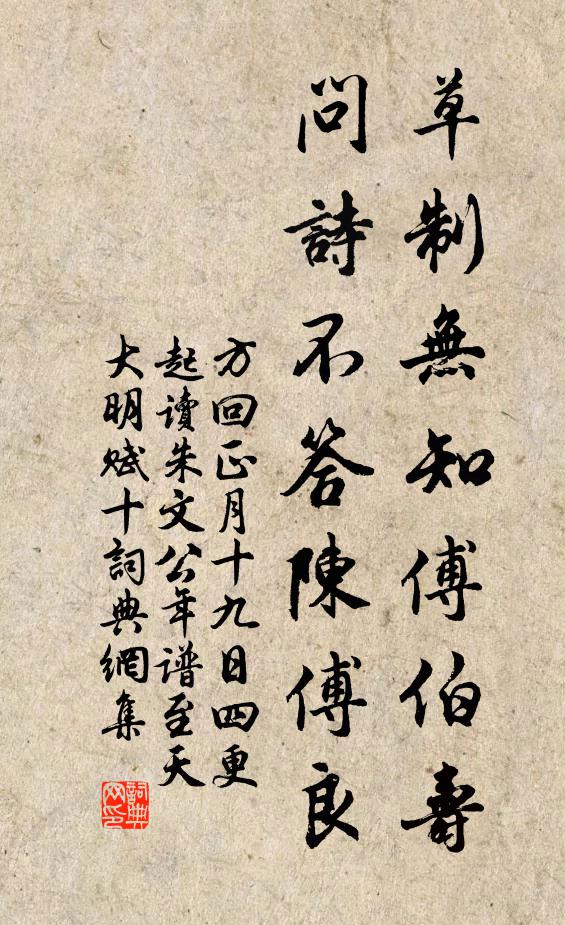 草制無知傅伯壽
問詩不答陳傅良
方回正月十九日四更
起讀朱文公年谱至天
大明賦十詞典網集
詞典网印